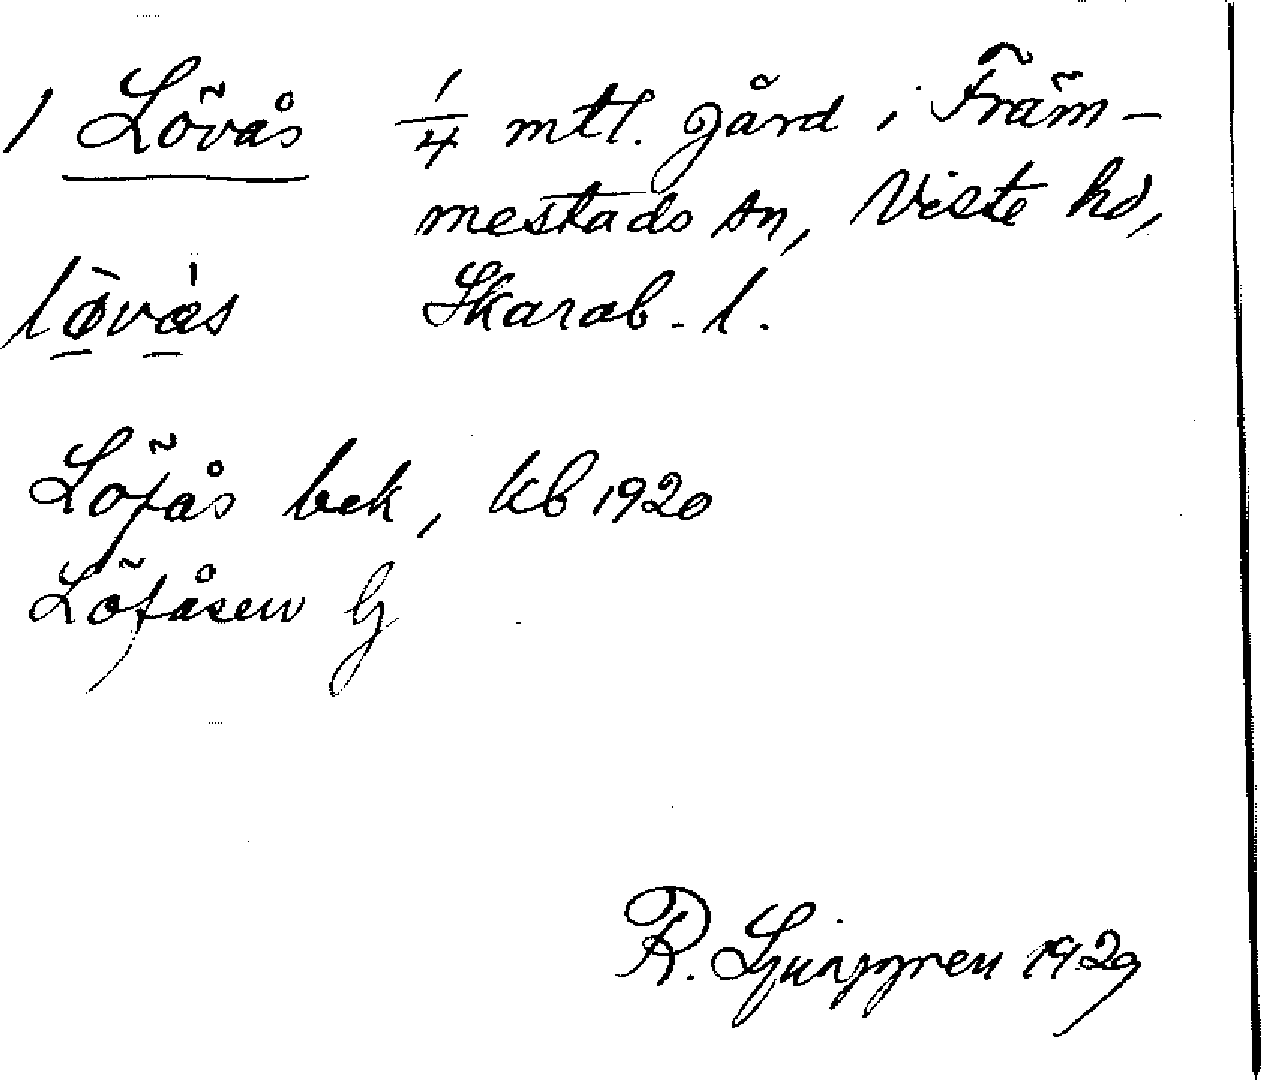 1 Lövås 1/4 mtl. gård i Främ-
mestads sn, Viste hd,
lø̀vás Skarab. l.
Löfås bek, kb 1920
Löfåsen G
R. Ljunggren 1929